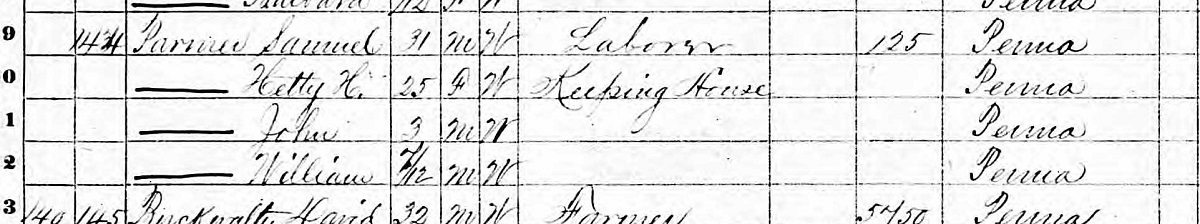 9 144 Parmer Samuel 31 M W Laborer 125 Penna
0 Hetty H. 25 F W Keeping House Penna
1 John 3 M W Penna
2 William 7/12 M W Penna
3 145 David 32 M W Farmer 5750 Penna